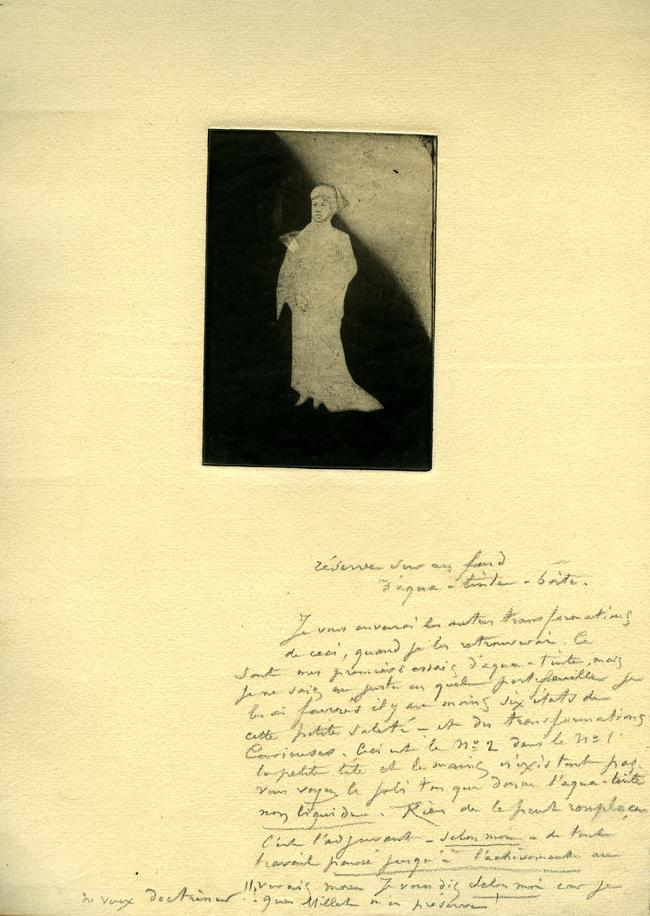 réserve sur un fond
d'aqua-tinte-boîte.
Je vous enverrai les autres transformations
de ceci, quand je les retrouverai. Ce
sont mes premiers essais d'aqua-tinte, mais
je ne sais au juste en quel portefeuille je
les ai fourrés il y a au moins six états de
cette petite saleté - et des transformations
Curieuses. Ceci est le Nº 2 dans le Nº 1
la petite tête et les mains n'existent pas.
vous voyez le joli ton que donne l'aqua-tinte
non liquide. Rien de le peut remplacer
C'est l'adjuvant - selon moi - de tout
travail poussé jusqu'à l'achèvement
moi Je vous dis selon moi car je
veux doctriner !! que Millet m'en préserve